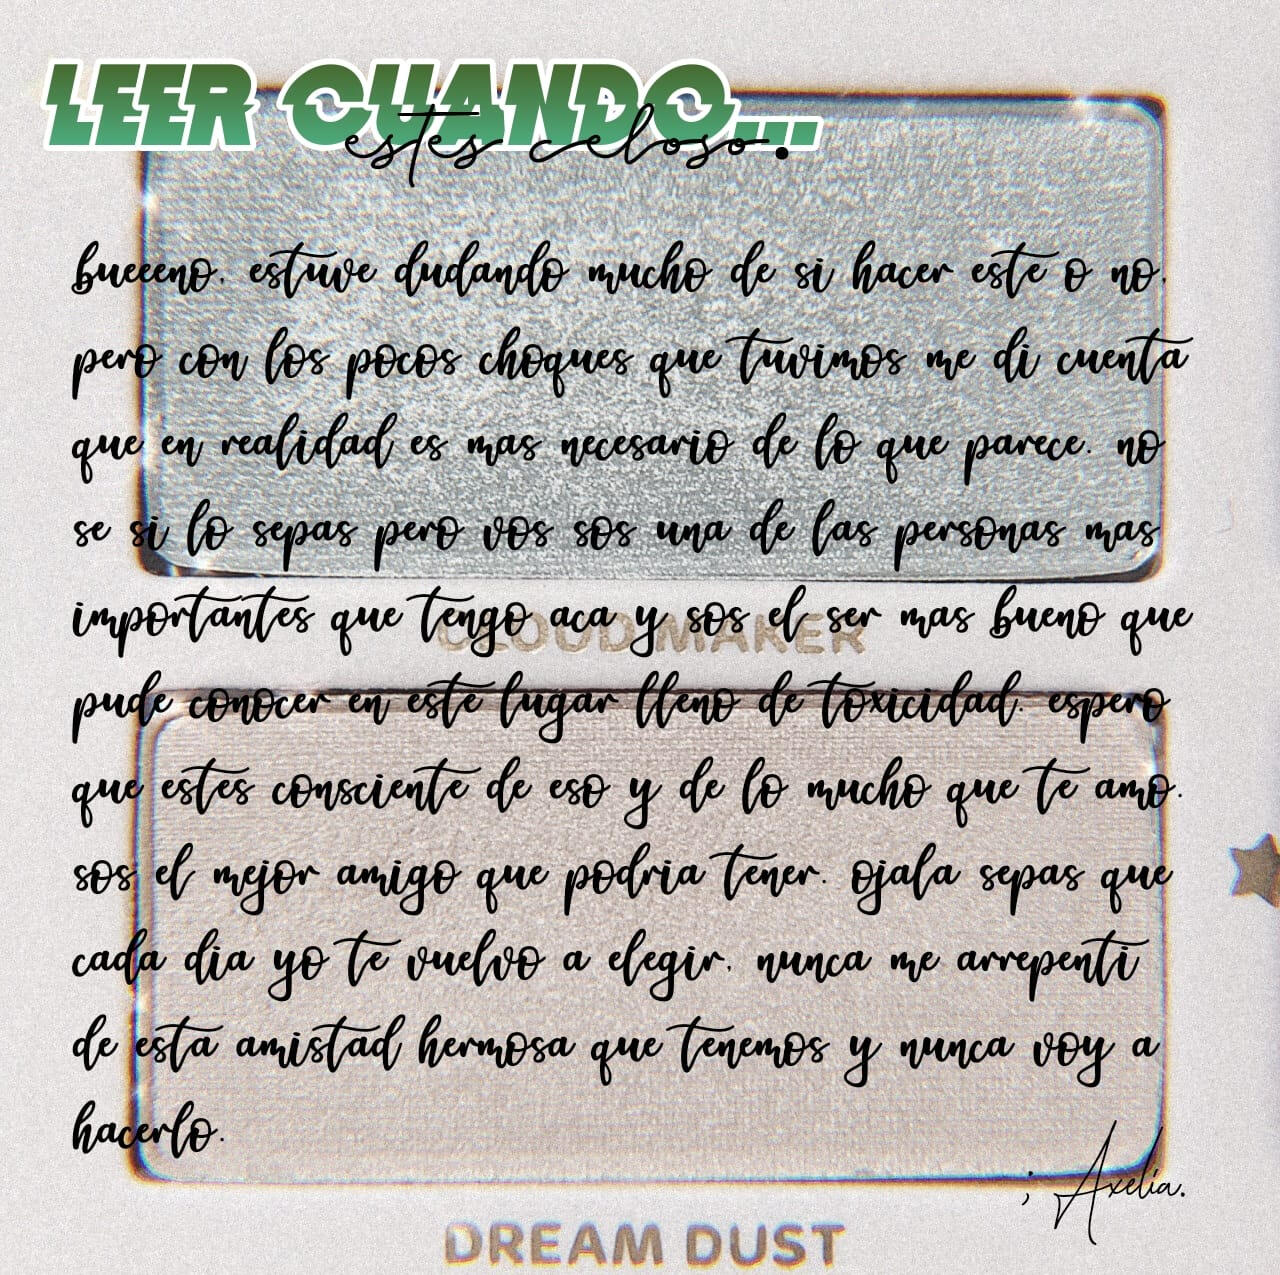 LEER CUANDO...
estes celoso.
bueeeno. estuve dudando mucho de si hacer este o no.
pero con los pocos choques que tuvimos me di cuenta
que en realidad es mas necesario de lo que parece. no
se si lo sepas pero vos sos una de las personas mas
importantes que tengo aca y sos el ser mas bueno que
CLOUD MAKER
pude conocer en este lugar lleno de toxicidad. espero
que estes consciente de eso y de lo mucho que te amo.
sos el mejor amigo que podria tener. ojala sepas que
cada dia yo te vuelvo a elegir. nunca me arrepenti
de esta amistad hermosa que tenemos y nunca voy a
hacerlo.
; Axelia.
DREAM DUST